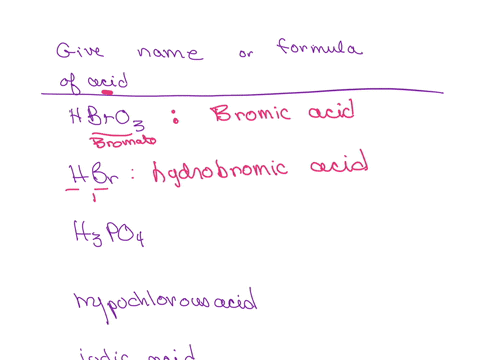 Give name or formula
of acid
HBrO3 : Bromic acid
Bromate
HBr : hydrobromic acid
H3PO4
hypochlorous acid
iodic acid